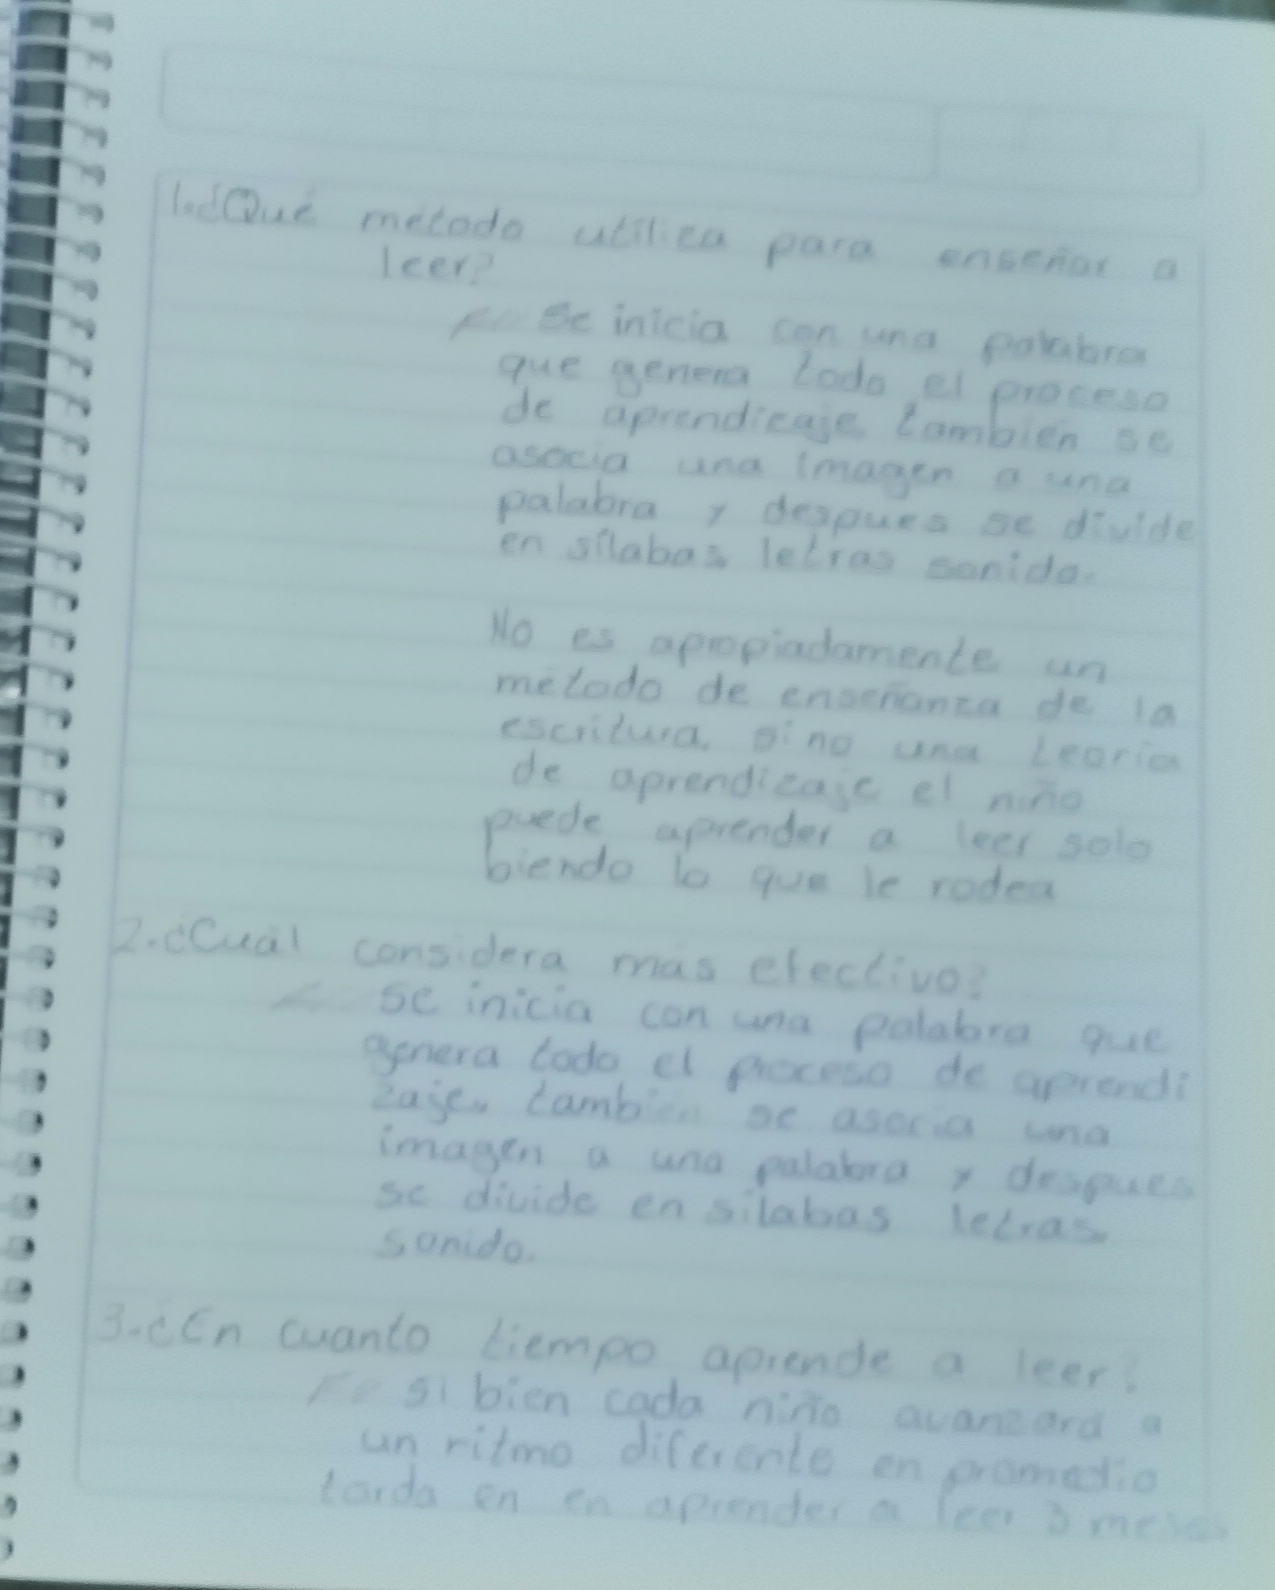 1.¿Qué método utiliza para enseñar a
leer?
Se inicia con una palabra
que genera todo el proceso
de aprendizaje, también se
asocia una imagen a una
palabra y despues se divide
en sílabas, letras sonido.
No es apropiadamente un
método de enseñanza de la
escritura, sino una teoria
de aprendizaje el niño
puede aprender a leer solo
biendo lo que le rodea
2.¿Cuál considera más efectivo?
se inicia con una palabra que
genera todo el proceso de aprendi
zaje, también se asocia una
imagen a una palabra y despues
se divide en silabas letras,
sonido.
3.¿En cuanto tiempo aprende a leer?
si bien cada niño avanzara a
un ritmo diferente en promedio
tarda en en aprender a leer 3 meses